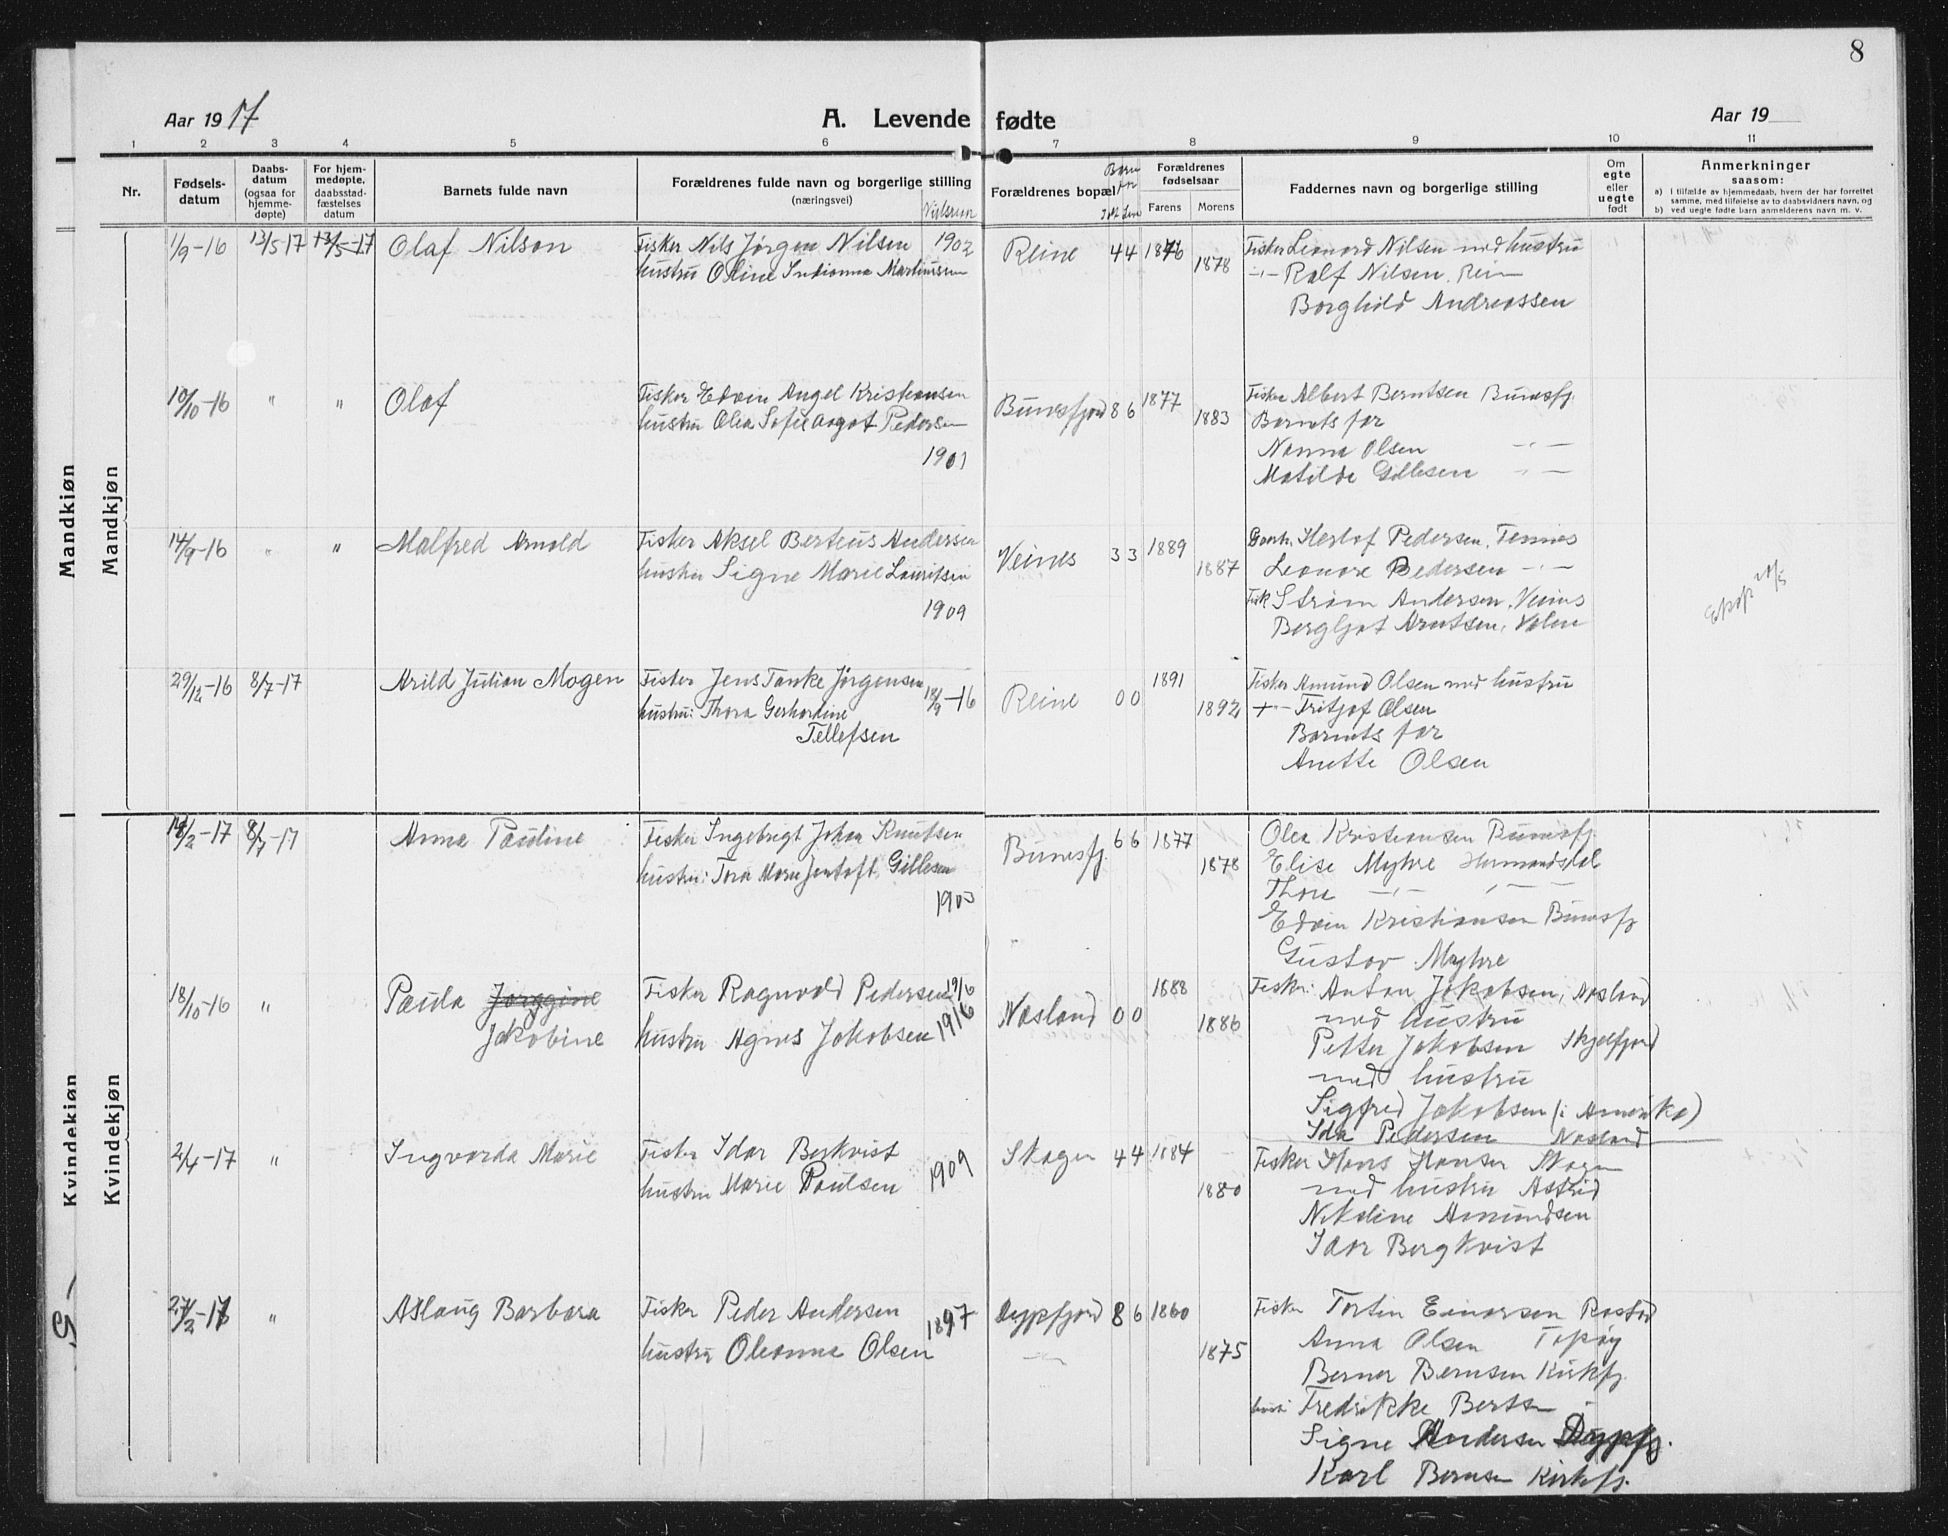 8
Aar 19 17
A. Levende fødte
Aar 19
1 2 3 4 5 6 7 8 9 10 11
Nr.
Fødsels-
datum
Daabs-
datum
(ogsaa for
hjemme-
døpte)
For hjem-
medøpte,
daabsstad-
fæstelses
datum
Barnets fulde navn
Forældrenes fulde navn og borgerlige stilling
(næringsvei)
Vielsesaar
Forældrenes bopæl
Forældrenes
fødselsaar
Farens Morens
Faddernes navn og borgerlige stilling
Om
egte
eller
uegte
født
Anmerkninger
saasom:
a) i tilfælde av hjemmedaab, hvem der har forrettet
samme, med tilføielse av to daabsvidners navn, og
b) ved uegte fødte barn anmelderens navn m. v.
Mandkjøn
Mandkjøn
1/9-16 13/5-17 13/5-17 Olaf Nilson
Fisker Nils Jørgen Nilsen 1902
hustru Oline Indianna Martinsen
Reine 4 4 1876 1878
Fisker Leonard Nilsen med hustru
-"- Ralf Nilsen, Rein
Borghild Andreassen
10/10-16 " " Olaf
Fisker Edvin Angel Kristiansen
hustru Olea Sofie Aagot Pedersen
1901
Bunesfjord 8 6 1877 1883
Fisker Albert Berntsen Bunesfj.
Barnets far
Nanna Olsen -"-
Matilde Gillesen -"-
14/9-16 " " Malfred Arnold
Fisker Aksel Berteus Andersen
hustru Signe Marie Lauritsen
1909
Veines 3 3 1889 1887
Herlof Pedersen, Tennes
Leonore Pedersen -"-
Fisk Strøm Andersen, Veines
Bergljot Arntsen,
29/12-16 8/7-17 Arild Julian Mogen
Fisker Jens Tanke Jørgensen
hustru: Thora Gerhardine
Tellefsen
-16
Reine 0 0 1891 1892
Fisker Amund Olsen med hustru
Fritjof Olsen
Barnets far
Anette Olsen
Kvindekjøn
Kvindekjøn
/2-17 8/7-17 Anna Pauline
Fisker Ingebrigt Johan Knutsen
hustru: Tora Marie Jentoft Gillesen
1903
Bunesfj. 6 6 1877 1878
Olea Kristiansen Bunesfj.
Elise Myhre Hermandsdal
Thora -"- -"-
Edvin Kristiansen Bunesfj
Gustav Myhre
18/10-16 " Paula Jørggine
Jakobine
Fisker Ragnvald Pedersen 1916
hustru Agnes Jakobsen 1916
Næsland 0 0 1888 1886
Fisker: Anton Jakobsen, Næsland
med hustru
Petter Jakobsen Skjelfjord
med hustru
Sigfred Jakobsen (i Amerika)
Ida Pedersen Næsland
2/4-17 " Ingvarda Marie
Fisker Idar Berkvist
hustru Marie Paulsen 1909
Skagen 4 4 1884 1880
Fisker Hans Hansen Skagen
med hustru Astrid
Nikoline Amundsen
Idar Bergkvist
27/2-17 " Aslaug Barbara
Fisker Peder Andersen
hustru Oleanna Olsen 1897
Dypfjord 8 6 1860 1875
Fisker Tortin Einarsen Rostad
Anna Olsen Topøy
Berner Bernsen Kirkfj.
Fredrikke Berntsen
Signe Andersen Dypfj.
Karl Bernsen Kirkefj.